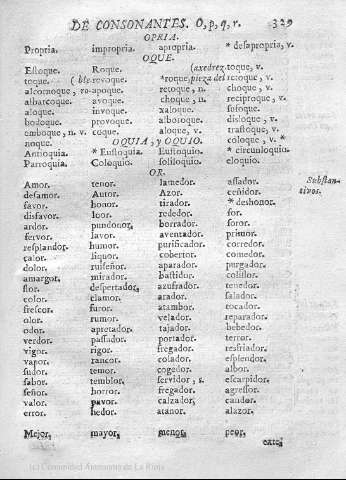 DE CONSONANTES. O, p, q, r. 329
OPRIA.
Propria. impropria. apropria. * desapropria, v.
OQUE.
Estoque. Roque. (axedrez. toque, v.
toque. ( blo. revoque. *roque, pieza del retoque, v.
alcornoque, ro- apoque. retoque, n. choque, v.
albarcoque. avoque. choque, n. reciproque, v.
aloque. invoque. xaloque. sofoque.
bodoque. provoque. alboroque. disloque, v.
emboque, n. v. coque. aloque, v. trastoque, v.
noque. coloque, v. *
OQUIA, y OQUIO.
Antioquia. * Eustoquia. Eustoquio. * circunloquio.
Parroquia. Coloquio. soliloquio. eloquio.
OR.
Amor. tenor. lamedor. assador. Substan-
desamor. Autor. Azor. ceñidor. tivos.
favor. honor. tirador. * deshonor.
disfavor. loor. rededor. for.
ardor. pundonor. borrador. foror.
fervor. lavor. aventador. primor.
resplandor. humor. purificador. corredor.
calor. liquor. cobertor. comedor.
dolor. ruiseñor. aparador. purgador.
amargor. mirador. bastidor.
flor. despertador. azufrador. tenedor.
color. clamor. arador. salador.
frescor. furor. atambor. tocador.
olor. rumor. velador. reparador.
odor. apretador. tajador. bebedor.
verdor. passador. portador. terror.
vigor. rigor. fregador. resfriador.
vapor. rancor. colador. esplendor.
sudor. temor. cogedor. albor.
sabor. temblor. servidor, s. escarpidor.
señor. horror. fregador. agressor.
valor. pavor. calzador. candor.
error. hedor. atanor. alazor.
Mejor, mayor, menor, peor,
exte-
(c) Comunidad Autónoma de La Rioja